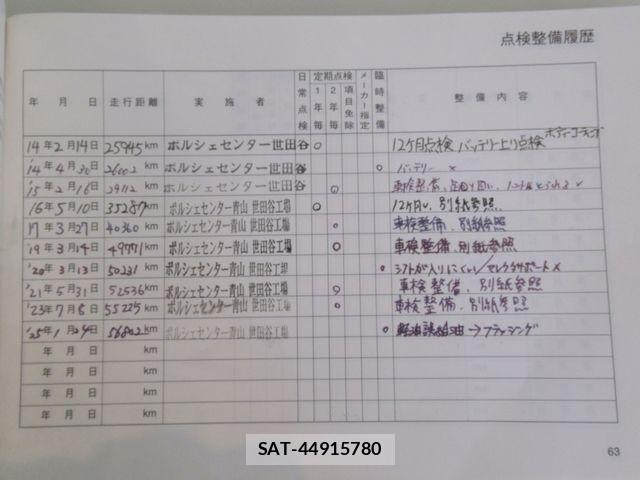 点検整備履歴
年 月 日 走行距離 実施者 日常点検 定期点検 1年毎 2年毎 項目免除 メーカー指定 臨時整備 整備内容
14年2月14日 25945km ポルシェセンター世田谷 ○ 12ヶ月点検 バッテリー上り点検 ボディーコーティング
'14年4月30日 26002km ポルシェセンター世田谷 ○ バッテリー ×
'15年2月16日 29112km ポルシェセンター世田谷 ○ 車検整備
16年5月10日 35287km ポルシェセンター青山 世田谷工場 ○ 別紙参照
17年3月27日 40360km ポルシェセンター青山 世田谷工場 ○ 車検整備、別紙参照
'19年3月14日 49771km ポルシェセンター青山 世田谷工場 ○ 車検整備、別紙参照
'20年3月13日 50231km ポルシェセンター青山 世田谷工場 ○ シフトが入りにくい/
'21年5月31日 52536km ポルシェセンター青山 世田谷工場 ○ 車検整備、別紙参照
'23年7月8日 55225km ポルシェセンター青山 世田谷工場 ○ 車検整備、別紙参照
'25年1月24日 56802km ポルシェセンター青山 世田谷工場 ○ 軽油誤給油→フラッシング
年 月 日 km
年 月 日 km
年 月 日 km
年 月 日 km
SAT-44915780
63